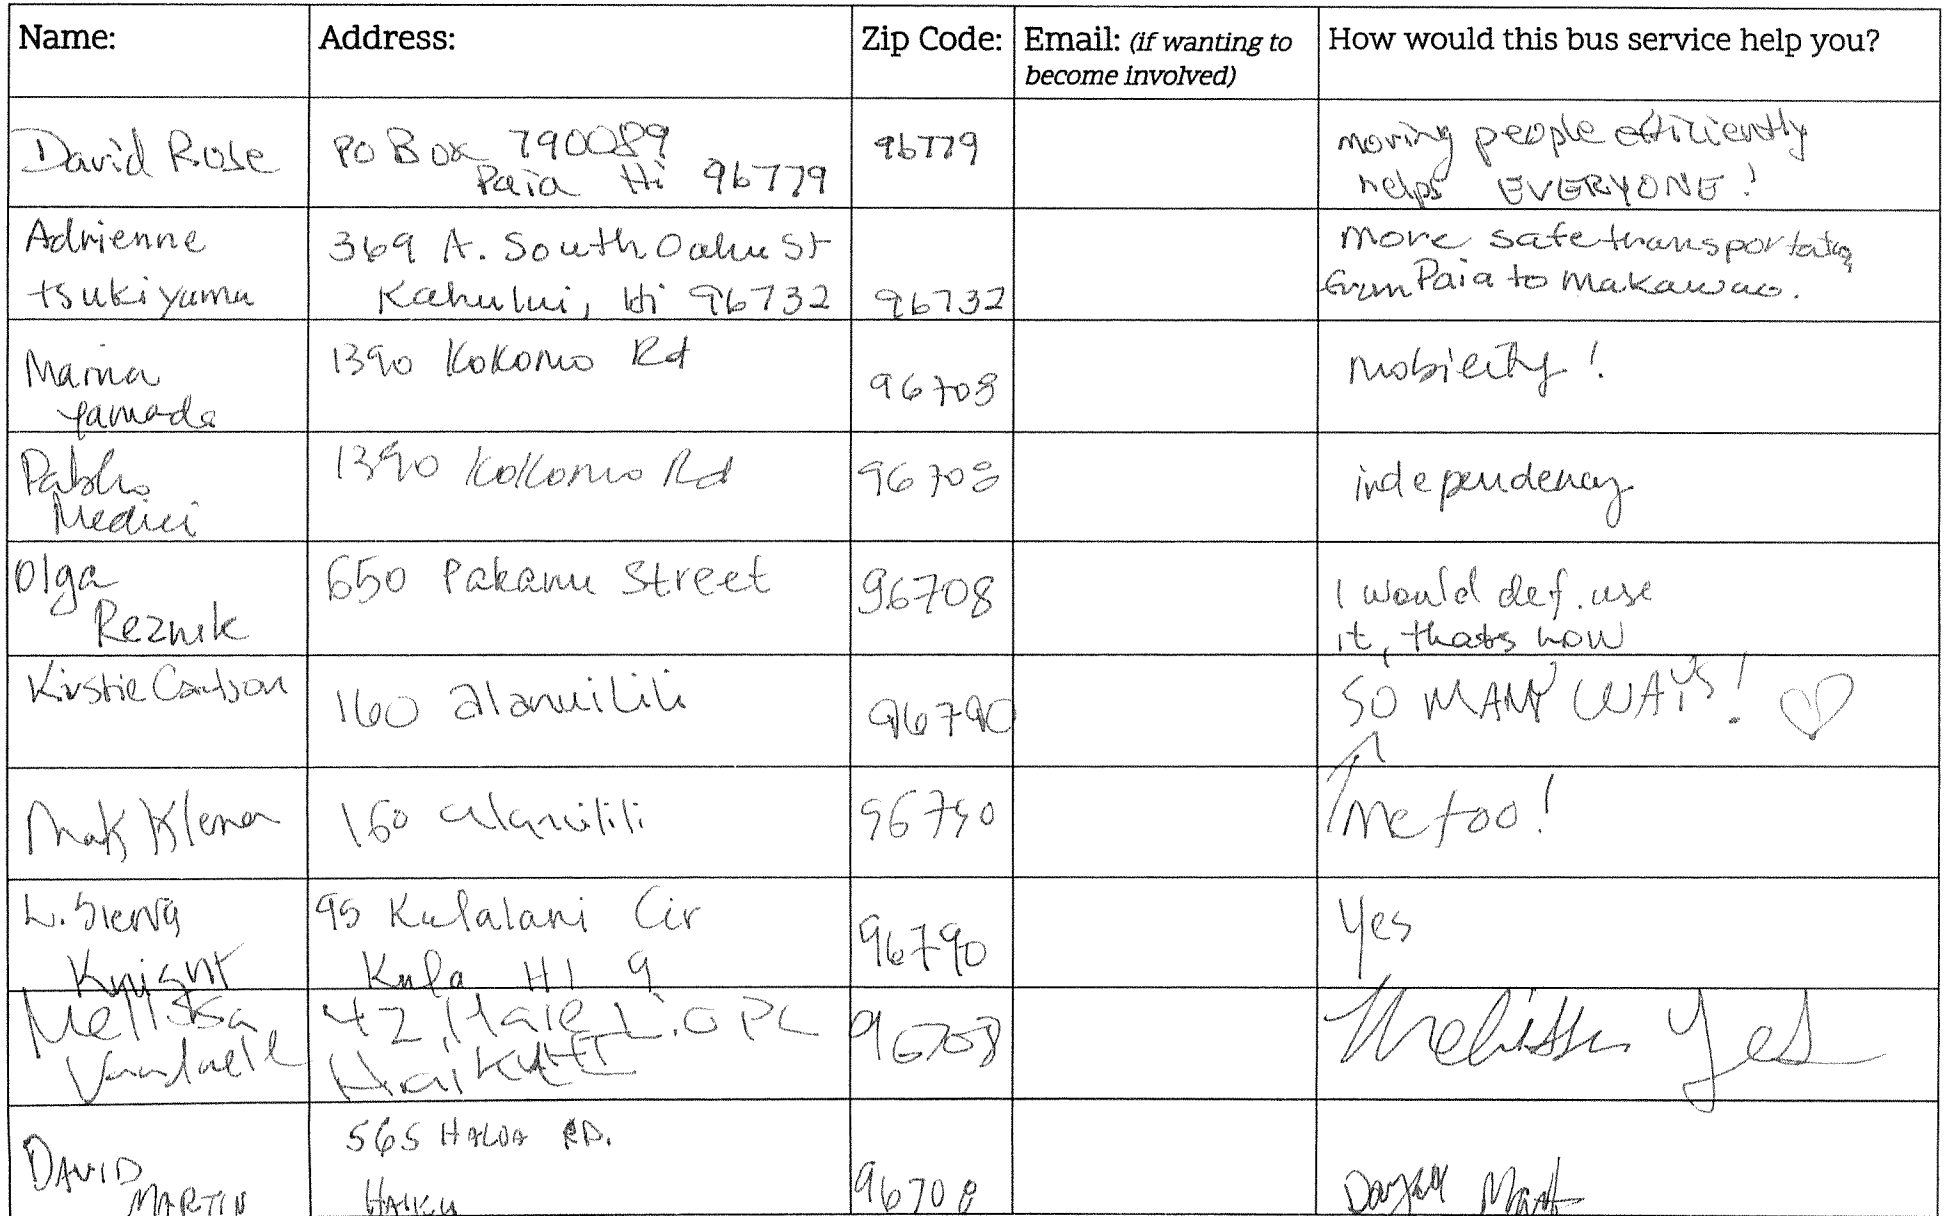 Name: Address: Zip Code: Email: (if wanting to become involved) How would this bus service help you?
David Rose PO Box 790089 Paia Hi 96779 96779 moving people efficiently helps EVERYONE!
Adrienne Tsukiyama 369 A. South Oahu St Kahului, Hi 96732 96732 more safe transportation from Paia to Makawao.
Marina Yamada 1390 Kokomo Rd 96708 mobility!
Pablo Medici 1390 Kokomo Rd 96708 independency
Olga Reznik 650 Pakanu Street 96708 I would def. use it, thats how
Kirstie Carlson 160 alanuilili 96790 SO MANY WAYS!
Mark Klema 160 alanuilili 96790 Me too!
L. Sierra Knight 95 Kulalani Cir Kula HI 9 96790 Yes
Melissa 42 Hale Li.o PL Haiku HI 96708 Melissa Yes
DAVID MARTIN 565 HALOA RD. HAIKU 96708